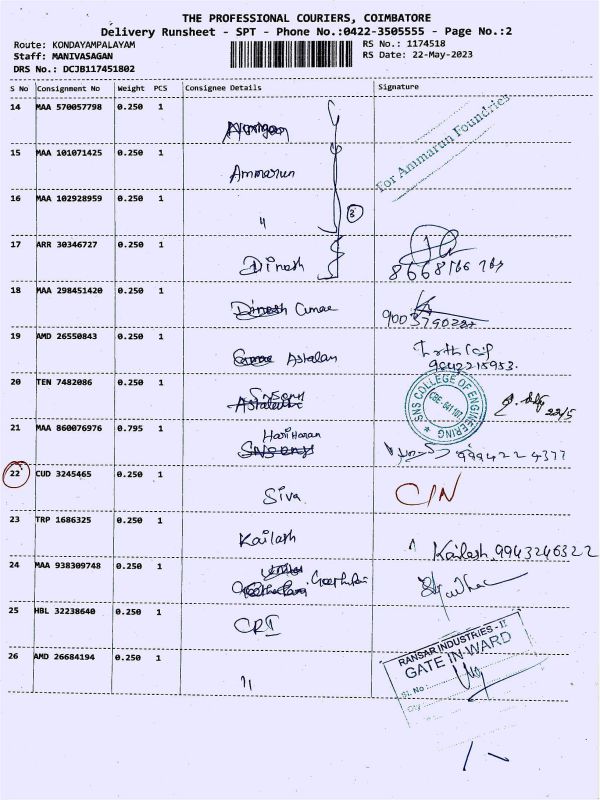 THE PROFESSIONAL COURIERS, COIMBATORE
Delivery Runsheet - SPT - Phone No.:0422-3505555 - Page No.:2
Route: KONDAYAMPALAYAM RS No.: 1174518
Staff: MANIVASAGAN RS Date: 22-May-2023
DRS No.: DCJB117451802
S No Consignment No Weight PCS Consignee Details Signature
14 MAA 570057798 0.250 1
For Ammarun Foundries
15 MAA 101071425 0.250 1 Ammarun
16 MAA 102928959 0.250 1 " 3
17 ARR 30346727 0.250 1 Dinesh
18 MAA 298451420 0.250 1 Dinesh
19 AMD 26550843 0.250 1 Askalan
9842215953.
20 TEN 7482086 0.250 1 SNS COLLEGE OF ENGINEERING CBE-641 107 22/5
21 MAA 860076976 0.795 1 Hari Haran
22 CUD 3245465 0.250 1 Siva C/N
23 TRP 1686325 0.250 1 Kailash Kailash 9943246322
24 MAA 938309748 0.250 1
25 HBL 32238640 0.250 1 CRI
26 AMD 26684194 0.250 1 "
RANSAR INDUSTRIES - II
GATE IN-WARD
SL. No